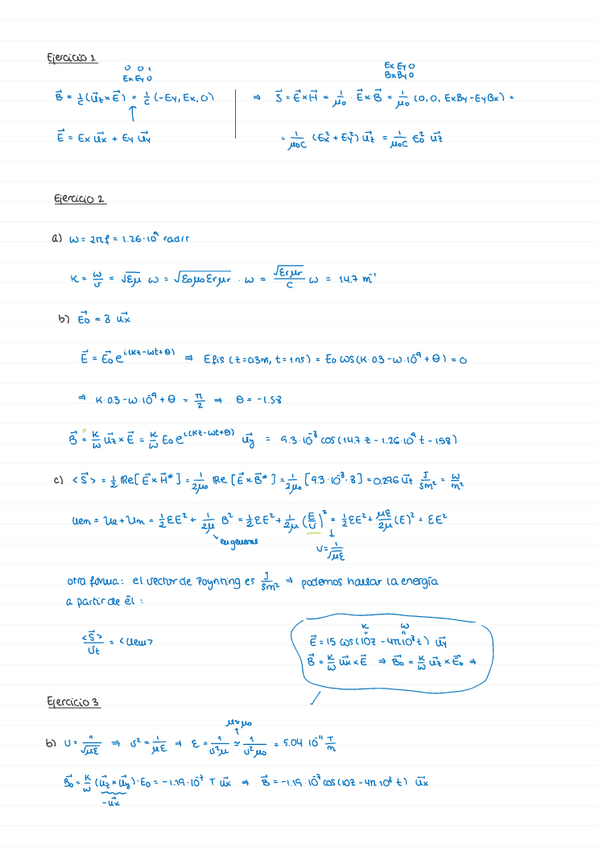 Ejercicio 1
0 0 1
Ex Ey 0
B⃗ = 1/c (u⃗z × E⃗) = 1/c (-Ey, Ex, 0)
E⃗ = Ex u⃗x + Ey u⃗y
Ex Ey 0
Bx By 0
⇒ S⃗ = E⃗ × H⃗ = 1/μ0 · E⃗ × B⃗ = 1/μ0 (0, 0, ExBy - EyBx) =
= 1/μ0c (Ex² + Ey²) u⃗z = 1/μ0c E0² u⃗z
Ejercicio 2
a) ω = 2πf = 1.26·10⁹ rad/s
K = ω/v = √εμ ω = √ε0μ0εrμr · ω = √εrμr/c ω = 14.7 m⁻¹
b) E⃗0 = 8 u⃗x
E⃗ = E⃗0 e^i(Kz-ωt+θ) ⇒ Efis (z=0.3m, t=1ns) = E0 cos(K·0.3 - ω·10⁻⁹ + θ) = 0
⇒ K·0.3 - ω·10⁻⁹ + θ = π/2 ⇒ θ = -1.58
B⃗ = K/ω u⃗z × E⃗ = K/ω E0 e^i(Kz-ωt+θ) u⃗y = 9.3·10⁻⁸ cos(14.7 z - 1.26·10⁹ t - 1.58)
c) <S⃗> = 1/2 Re[E⃗ × H⃗*] = 1/2μ0 Re[E⃗ × B⃗*] = 1/2μ0 [9.3·10⁻⁸·8] = 0.296 u⃗z J/Sm² = W/m²
Uem = Ue + Um = 1/2 εE² + 1/2μ B² = 1/2 εE² + 1/2μ (E/v)² = 1/2 εE² + με/2μ (E)² = εE²
en general
v = 1/√με
otra forma: el vector de Poynting es J/Sm² → podemos hallar la energía
a partir de él:
<S⃗>/Ut = <Uem>
K ω
E⃗ = 15 cos(10z - 4π10⁸t) u⃗y
B⃗ = K/ω u⃗x × E⃗ ⇒ B⃗0 = K/ω u⃗z × E⃗0 ⇒
Ejercicio 3
μ≈μ0
b) v = 1/√με ⇒ v² = 1/με ⇒ ε = 1/v²μ ≃ 1/v²μ0 = 5.04 10⁻¹¹ F/m
B⃗0 = K/ω (u⃗z × u⃗y)·E0 = -1.19·10⁻⁷ T u⃗x ⇒ B⃗ = -1.19·10⁻⁷ cos(10z - 4π 10⁸ t) u⃗x
-u⃗x